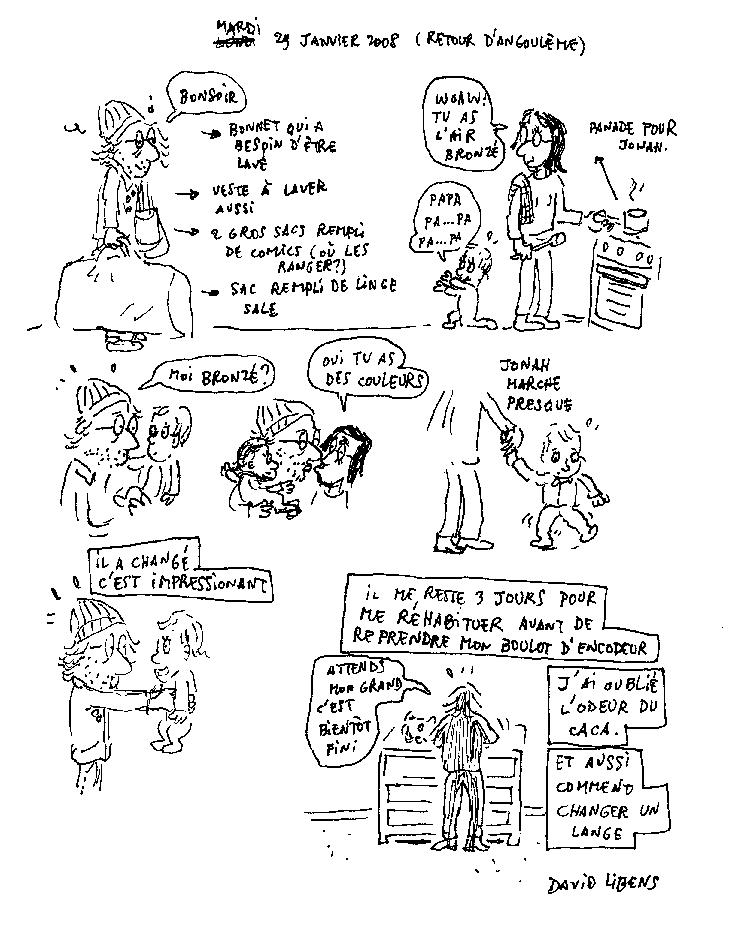 MARDI
29 JANVIER 2008 (RETOUR D'ANGOULÊME)
BONSOIR
BONNET QUI A
BESOIN D'ÊTRE
LAVÉ
VESTE À LAVER
AUSSI
2 GROS SACS REMPLI
DE COMICS (OÙ LES
RANGER?)
SAC REMPLI DE LINGE
SALE
WOAW!
TU AS
L'AIR
BRONZÉ
PANADE POUR
JONAH.
PAPA
PA...PA
PA...PA
MOI BRONZÉ?
OUI TU AS
DES COULEURS
JONAH
MARCHE
PRESQUE
IL A CHANGÉ
C'EST IMPRESSIONANT
IL ME RESTE 3 JOURS POUR
ME RÉHABITUER AVANT DE
REPRENDRE MON BOULOT D'ENCODEUR
ATTENDS
MON GRAND
C'EST
BIENTÔT
FINI
J'AI OUBLIÉ
L'ODEUR DU
CACA.
ET AUSSI
COMMEND
CHANGER UN
LANGE
DAVID LIBENS